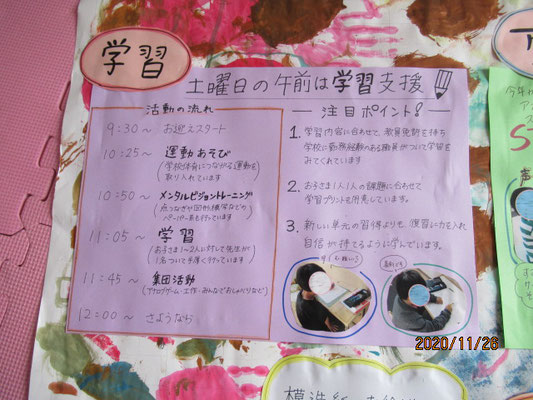 学習
土曜日の午前は学習支援
活動の流れ
9:30～ お迎えスタート
10:25～ 運動あそび
(学校体育につながる運動を
取り入れています)
10:50～ メンタルビジョントレーニング
(点つなぎや図形模写などの
ペーパー系も行っています)
11:05～ 学習
(お子さま1～2人に対して先生が
1名ついて手厚く行っています)
11:45～ 集団活動
(アナログゲーム・工作・みんなでおしゃべりなど)
12:00～ さようなら
注目ポイント!
1. 学習内容に合わせて、教員免許を持ち
学校に勤務経験のある職員がついて学習を
みてくれています
2. お子さま1人1人の課題に合わせて
学習プリントも用意しています。
3. 新しい単元の習得よりも、復習に力を入れ
自信が持てるように学んでいます。
今年
ア
S
2020/11/26